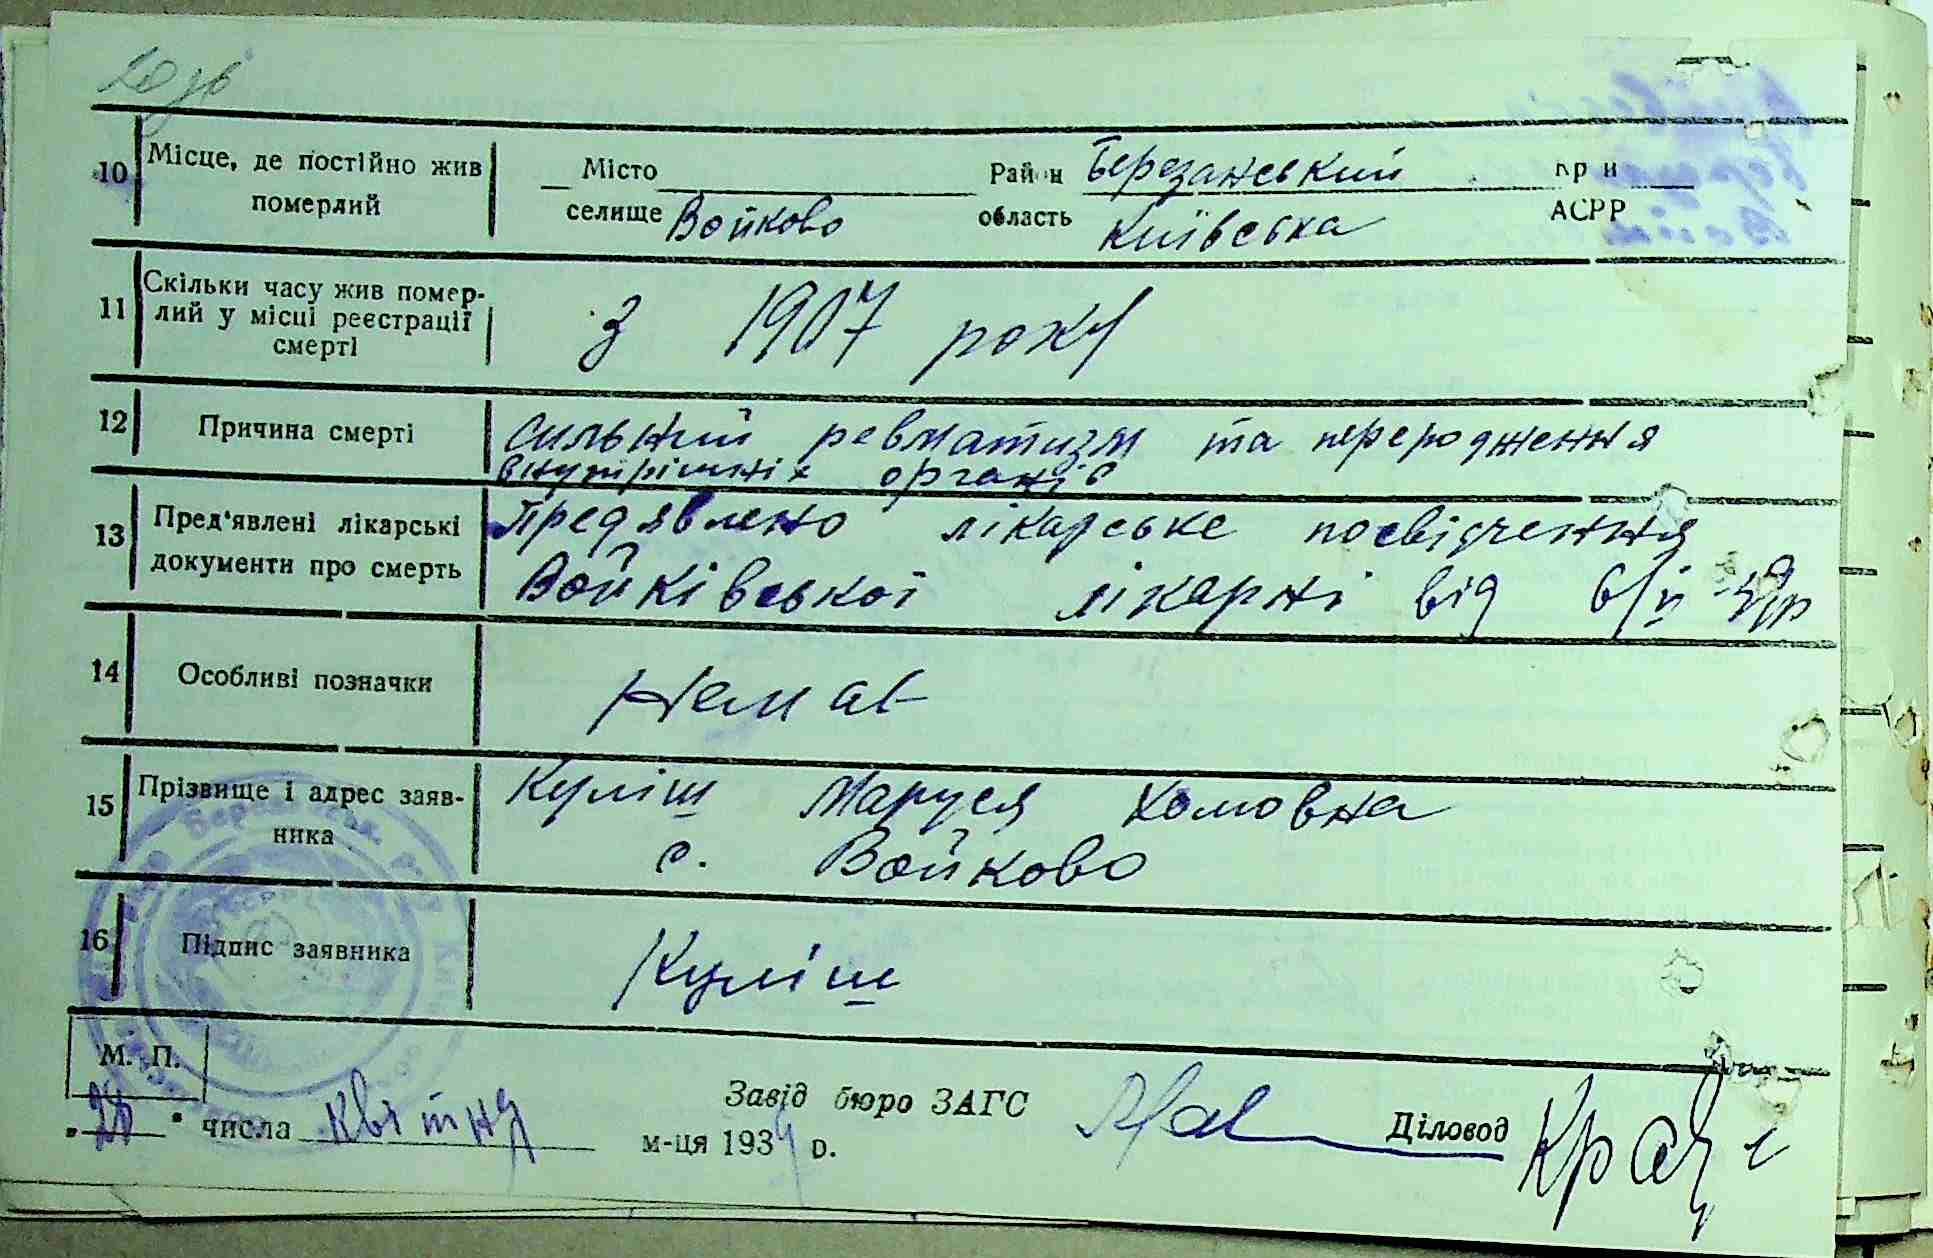 20 зв
10 Місце, де постійно жив померлий
Місто Район Березанський Кр й
селище Войково область Київська АСРР
11 Скільки часу жив помер-
лий у місці реєстрації
смерті
з 1907 року
12 Причина смерті
сильний ревматизм та переродження
внутрішніх органів
13 Пред'явлені лікарські
документи про смерть
Предявлено лікарське посвідчення
Войківської лікарні від
14 Особливі позначки
Немає
15 Прізвище і адрес заяв-
ника
Куліш Маруся Хомовна
с. Войково
16 Підпис заявника
Куліш
М. П.
Завід бюро ЗАГС Діловод
„28" числа квітня м-ця 1939 р.